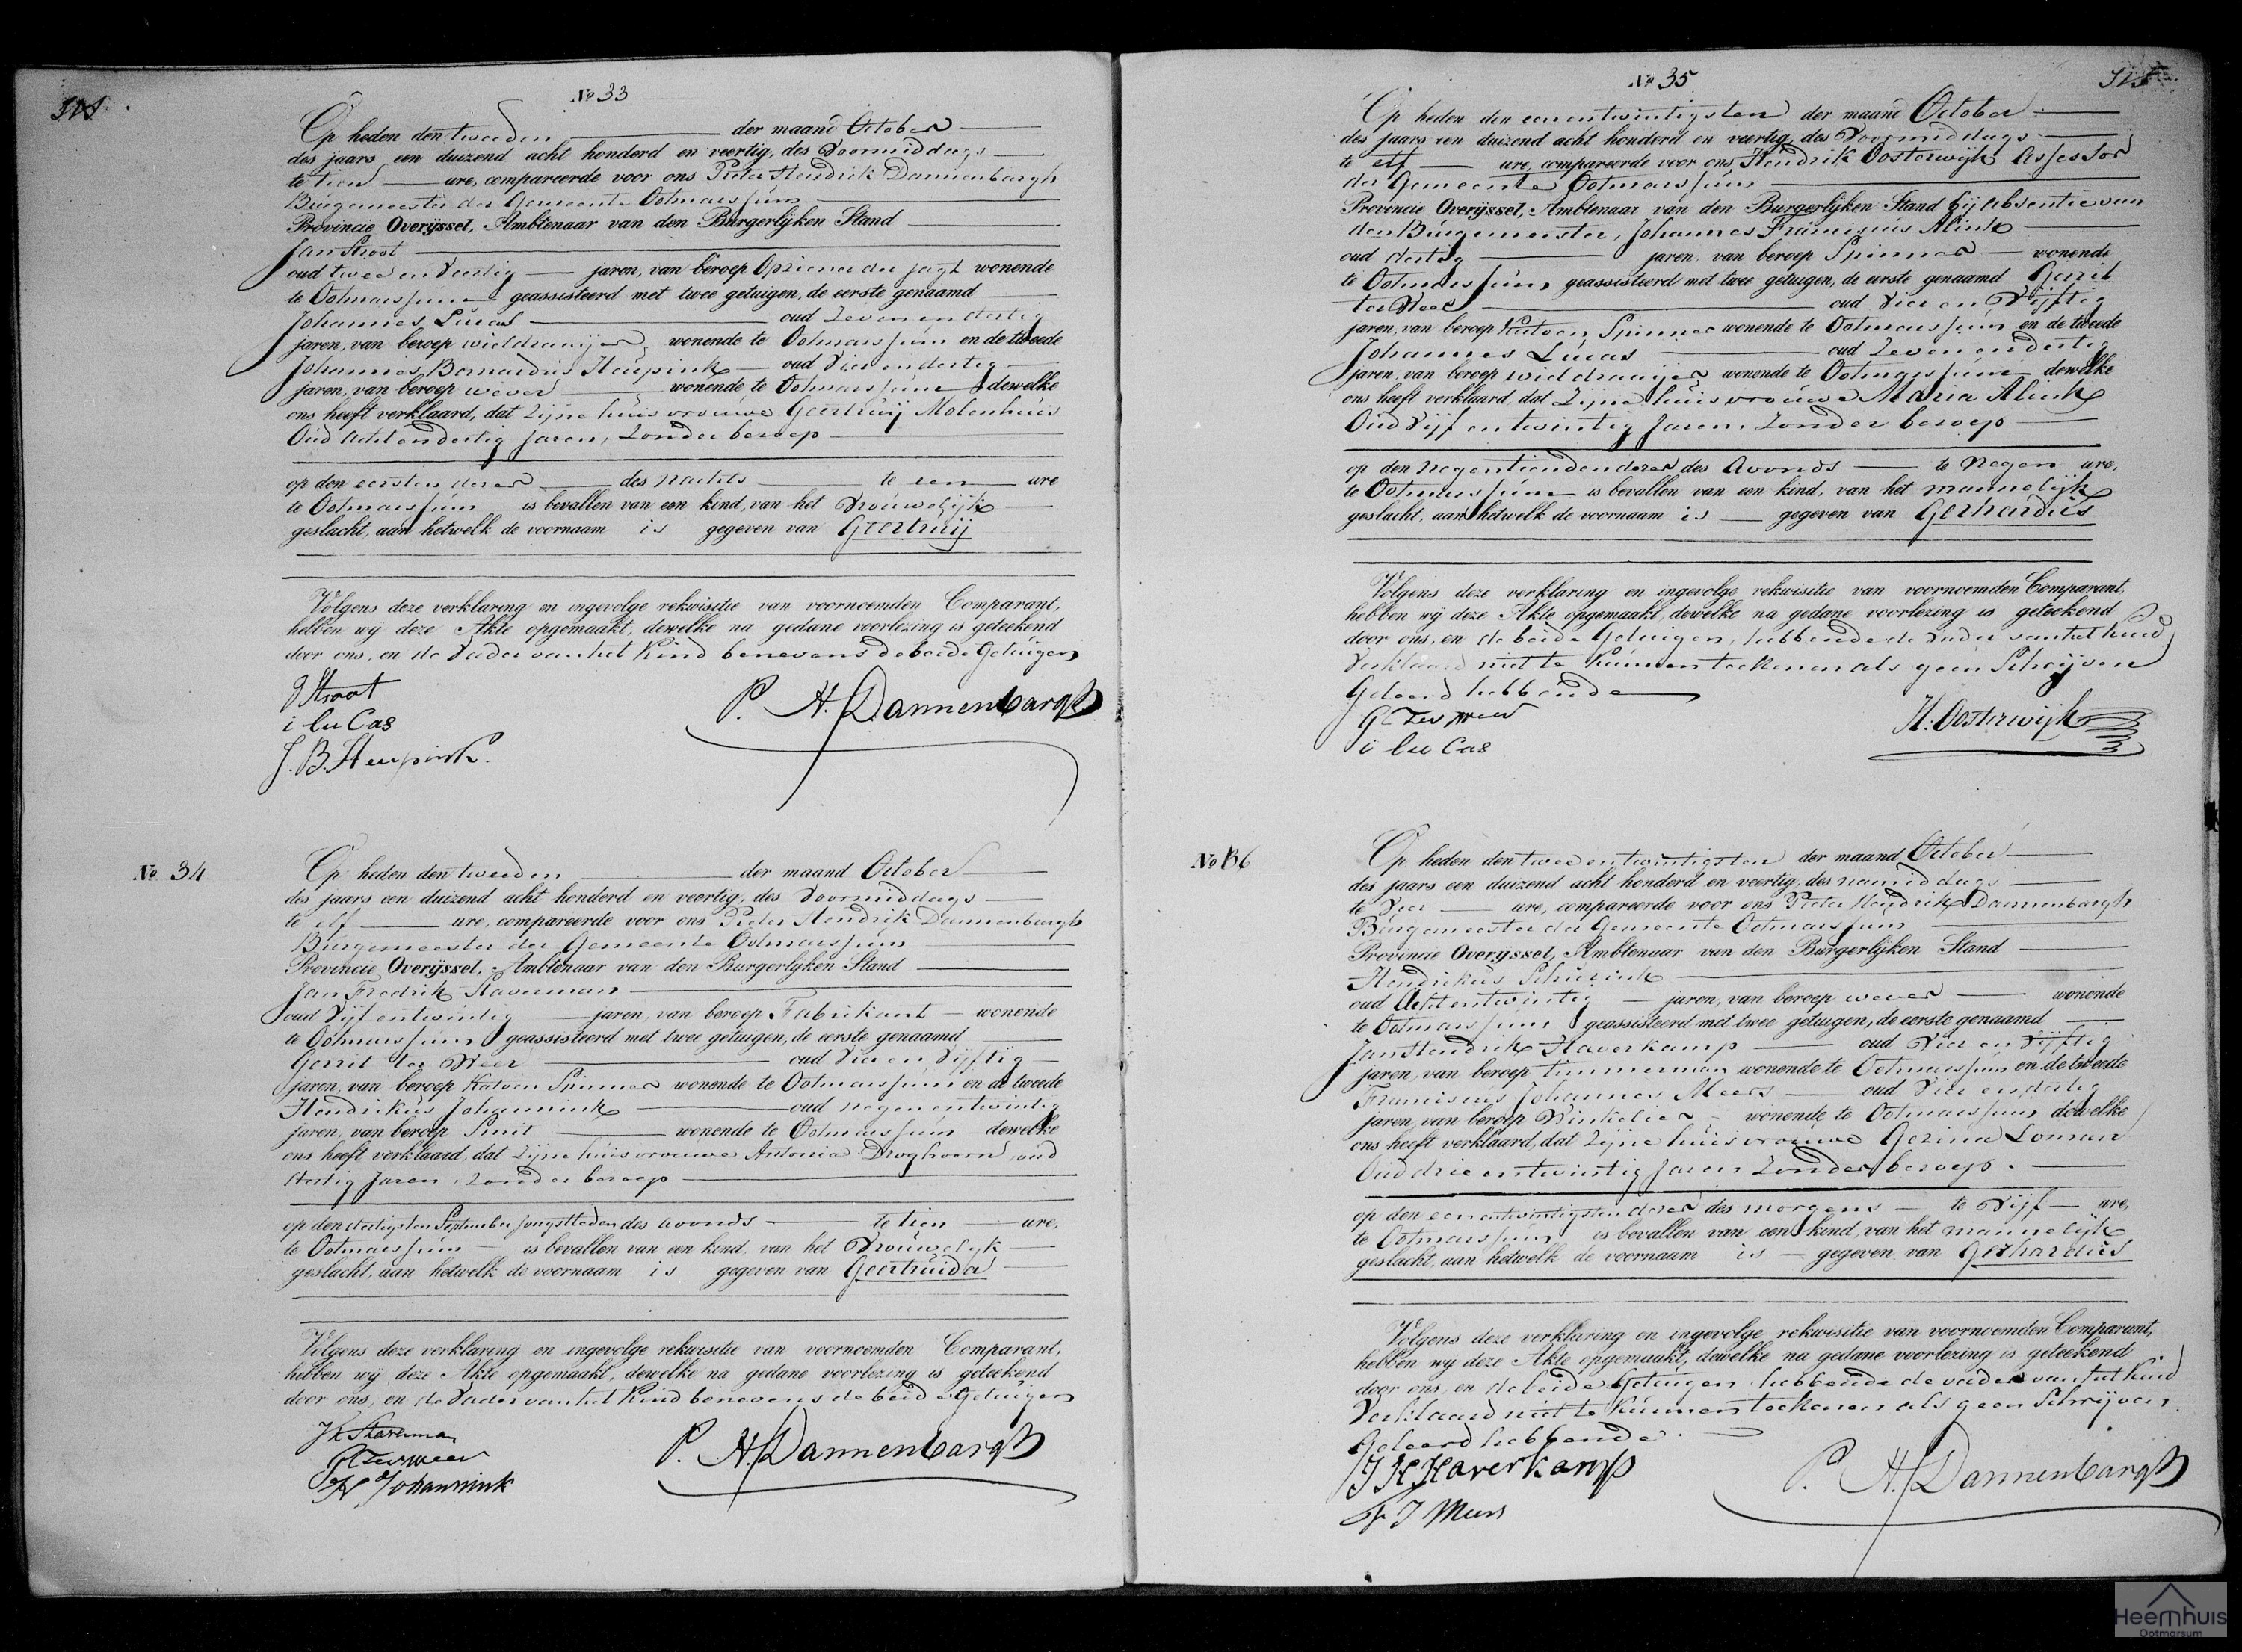 No 33
Op heden den tweeden der maand October
des jaars een duizend acht honderd en veertig, des Voormiddags
te tien ure, compareerde voor ons Pieter Hendrik Dannenbargh
Burgemeester der Gemeente Ootmarssum
Provincie Overijssel, Ambtenaar van den Burgerlijken Stand
Jan Stroot
oud twee en Veertig jaren, van beroep Opziener der jagt wonende
te Ootmarssum geassisteerd met twee getuigen, de eerste genaamd
Johannes Lucas oud Zeven en dertig
jaren, van beroep wieldraaijer wonende te Ootmarssum en de tweede
Johannes Bernardus Heupink oud Vier en dertig
jaren, van beroep wever wonende te Ootmarssum dewelke
ons heeft verklaard, dat Zijne huisvrouwe Geertruij Molenhuis
Oud Acht en dertig Jaren, Zonder beroep
op den eersten dezer des Nachts te een ure
te Ootmarssum is bevallen van een kind, van het Vrouwelijk
geslacht, aan hetwelk de voornaam is gegeven van Geertruij
Volgens deze verklaring en ingevolge rekwisitie van voornoemden Comparant,
hebben wij deze Akte opgemaakt, dewelke na gedane voorlezing is geteekend
door ons, en de Vader van het Kind benevens de beide Getuigen
J Stroot
i lu Cas
J. B. Heupink.
P. H. Dannenbargh
No 34
Op heden den tweeden der maand October
des jaars een duizend acht honderd en veertig, des Voormiddags
te elf ure, compareerde voor ons Pieter Hendrik Dannenbargh
Burgemeester der Gemeente Ootmarssum
Provincie Overijssel, Ambtenaar van den Burgerlijken Stand
Jan Fredrik Staverman
oud Vijf en twintig jaren, van beroep Fabrikant wonende
te Ootmarssum geassisteerd met twee getuigen, de eerste genaamd
Gerrit ter Weer oud Vier en Vijftig
jaren, van beroep Katoen Spinner wonende te Ootmarssum en de tweede
Hendrikus Johannink oud negen en twintig
jaren, van beroep Smit wonende te Ootmarssum dewelke
ons heeft verklaard, dat Zijne huisvrouwe Antonia Droghoorn oud
dertig Jaren, Zonder beroep
op den dertigsten September jongstleden des avonds te tien ure,
te Ootmarssum is bevallen van een kind, van het Vrouwelijk
geslacht, aan hetwelk de voornaam is gegeven van Geertruida
Volgens deze verklaring en ingevolge rekwisitie van voornoemden Comparant,
hebben wij deze Akte opgemaakt, dewelke na gedane voorlezing is geteekend
door ons, en de Vader van het Kind benevens de beide Getuigen
G Ter Weer
H Johannink
P. H. Dannenbargh
No 35
Op heden den een en twintigsten der maand October
des jaars een duizend acht honderd en veertig, des Voormiddags
te elf ure, compareerde voor ons Hendrik Oosterwijk Assessor
der Gemeente Ootmarssum
Provincie Overijssel, Ambtenaar van den Burgerlijken Stand bij Absentie van
den Burgemeester, Johannes Franciscus Alink
oud dertig jaren, van beroep Spinner wonende
te Ootmarssum geassisteerd met twee getuigen, de eerste genaamd Gerrit
ter Weer oud Vier en Vijftig
jaren, van beroep Katoen Spinner wonende te Ootmarssum en de tweede
Johannes Lucas oud Zeven en dertig
jaren, van beroep wieldraaijer wonende te Ootmarssum dewelke
ons heeft verklaard, dat Zijne huisvrouwe Maria Alink
Oud Vijf en twintig Jaren, Zonder beroep
op den Negentienden dezer des Avonds te Negen ure,
te Ootmarssum is bevallen van een kind, van het mannelijk
geslacht, aan hetwelk de voornaam is gegeven van Gerhardus
Volgens deze verklaring en ingevolge rekwisitie van voornoemden Comparant,
hebben wij deze Akte opgemaakt, dewelke na gedane voorlezing is geteekend
door ons, en de beide Getuigen, hebbende de Vader van het kind
Verklaard niet te kunnen teekenen als geen Schrijven
Geleerd hebbende
G Ter Weer
i lu Cas
H. Oosterwijk
No 36
Op heden den twee en twintigsten der maand October
des jaars een duizend acht honderd en veertig, des namiddags
te Vier ure, compareerde voor ons Pieter Hendrik Dannenbargh
Burgemeester der Gemeente Ootmarssum
Provincie Overijssel, Ambtenaar van den Burgerlijken Stand
Hendrikus Schurink
oud Acht en twintig jaren, van beroep wever wonende
te Ootmarssum geassisteerd met twee getuigen, de eerste genaamd
Jan Hendrik Haverkamp oud Vier en Vijftig
jaren, van beroep timmerman wonende te Ootmarssum en de tweede
Franciscus Johannes Meers oud Vier en dertig
jaren, van beroep Winkelier wonende te Ootmarssum dewelke
ons heeft verklaard, dat Zijne huisvrouwe Gezina Loman
Oud drie en twintig Jaren Zonder beroep.
op den een en twintigsten dezer des morgens te Vijf ure,
te Ootmarssum is bevallen van een kind, van het mannelijk
geslacht, aan hetwelk de voornaam is gegeven van Gerhardus
Volgens deze verklaring en ingevolge rekwisitie van voornoemden Comparant,
hebben wij deze Akte opgemaakt, dewelke na gedane voorlezing is geteekend
door ons, en de beide Getuigen hebbende de vader van het Kind
Verklaard niet te kunnen teekenen als geen Schrijven
Geleerd hebbende.
J H Haverkamp
F J Meers
P. H. Dannenbargh
Heemhuis
Ootmarsum